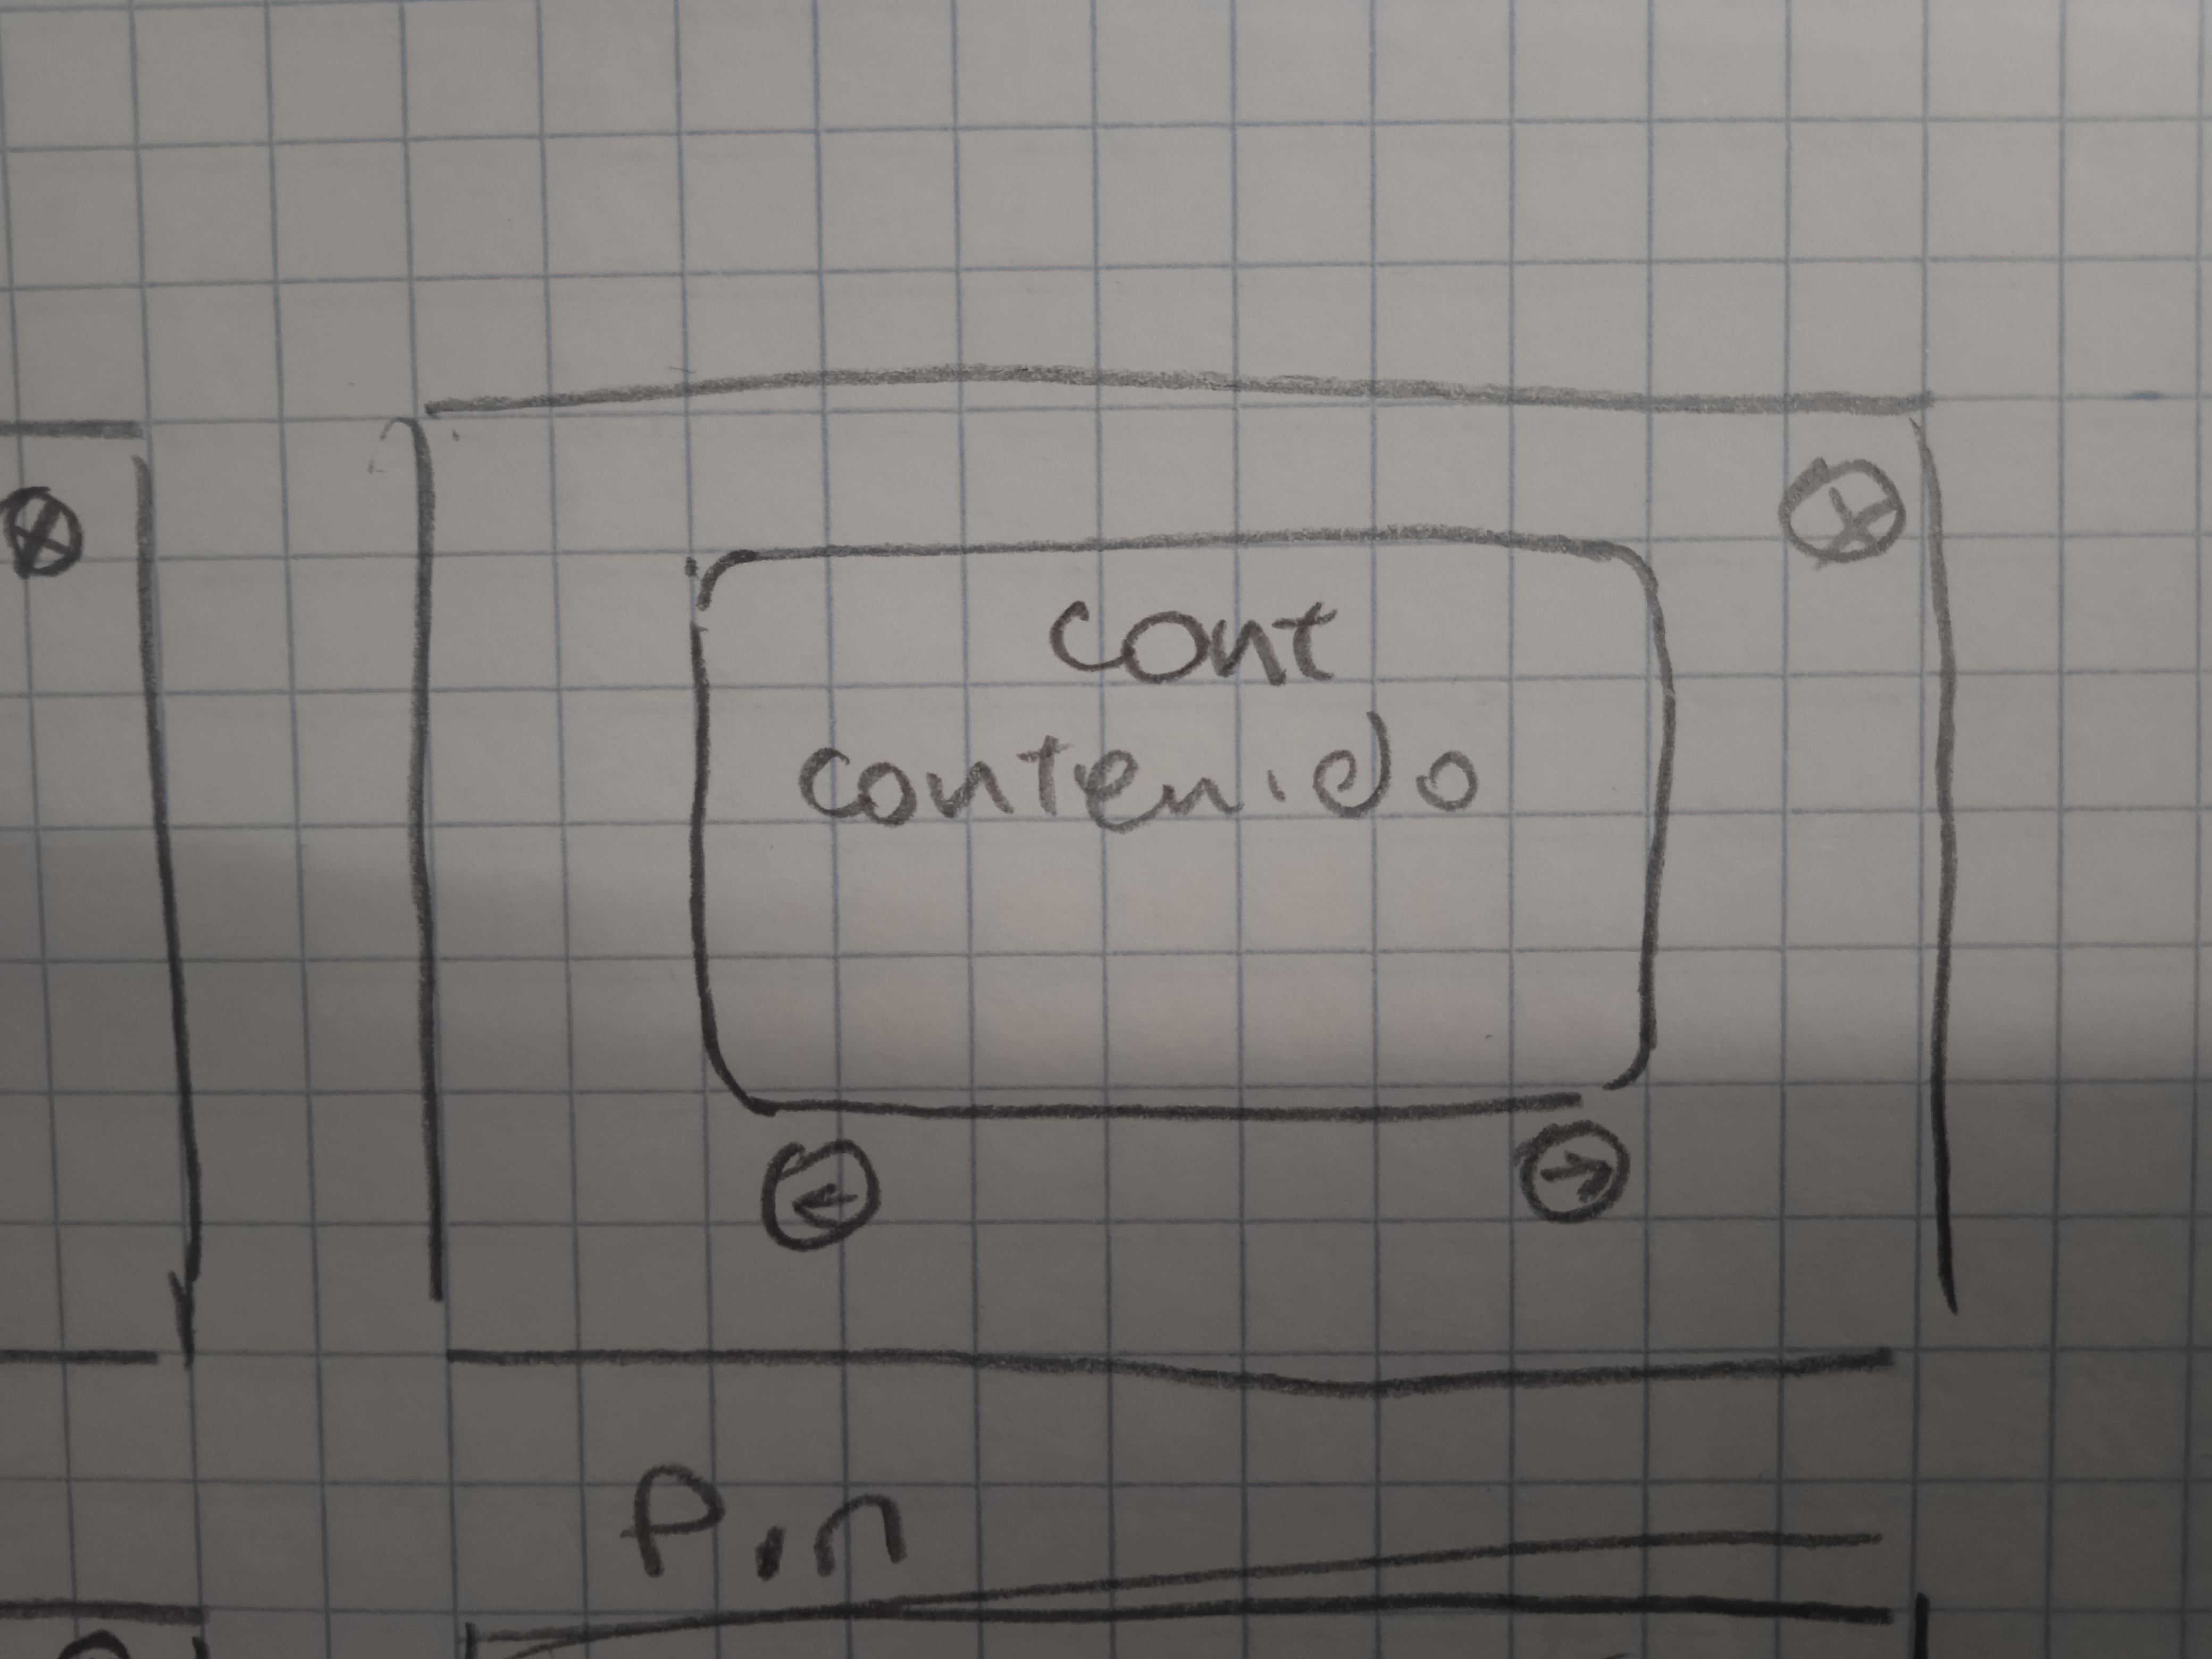 cont
contenido
Pin